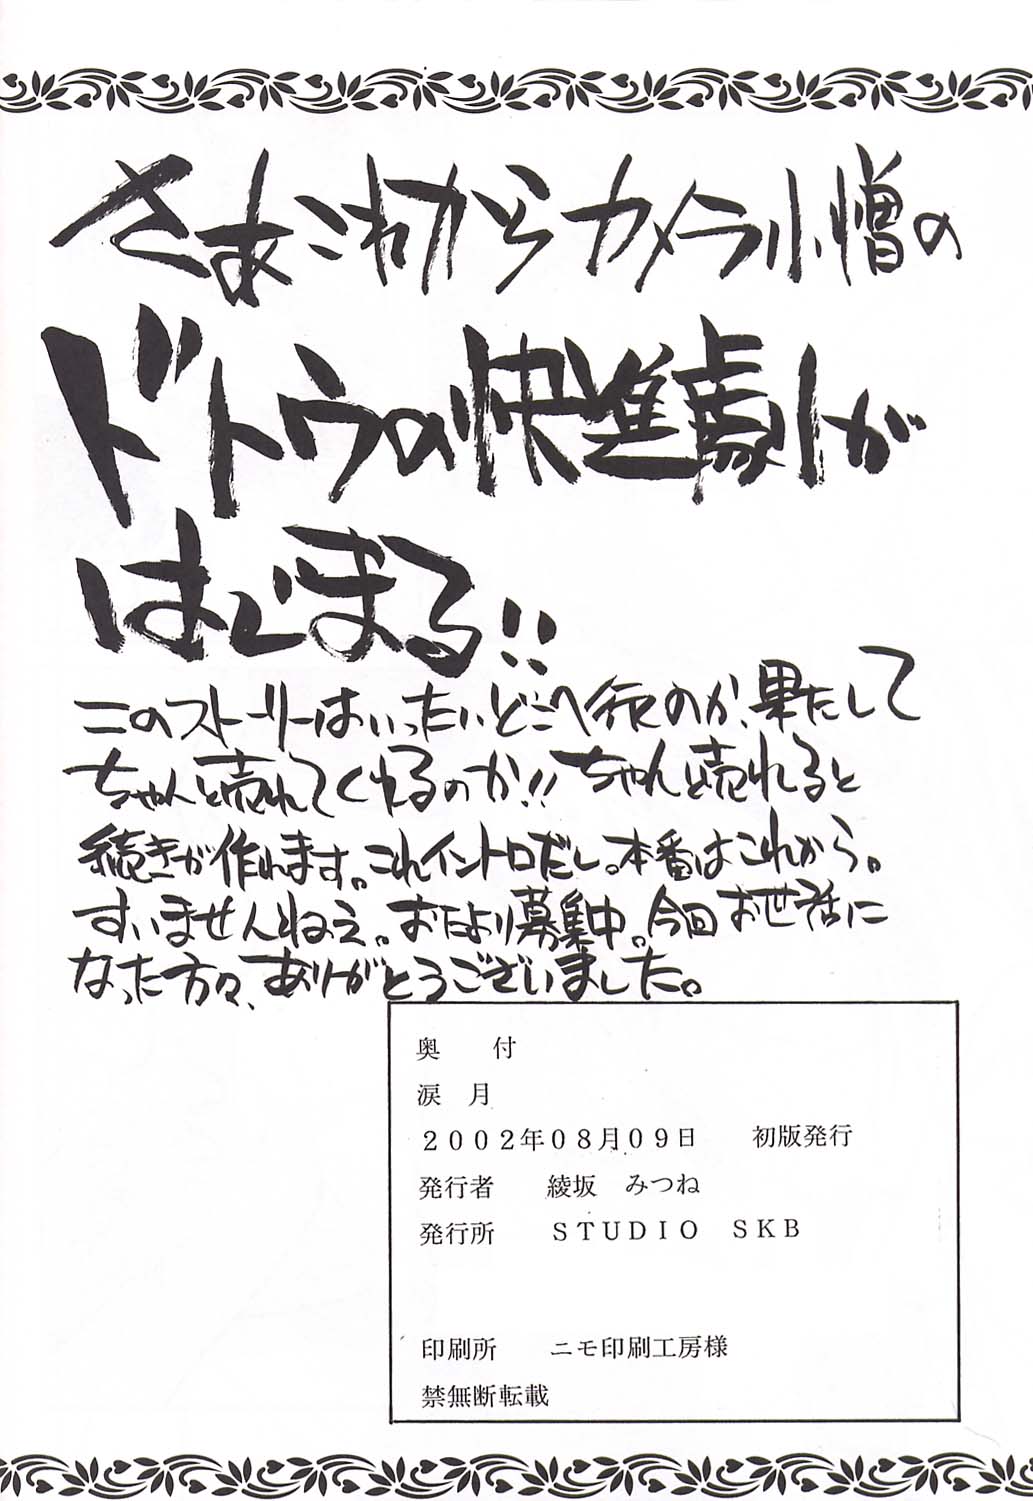 さあこれからカメラ小憎の
ドトウの快進劇が
はじまる!!
このストーリーはいったいどこへ行くのか、果たして
ちゃんと売れてくれるのか!!ちゃんと売れると
続きが作れます。これイントロだし。本番はこれから。
すいませんねえ。おたより募集中。今回お世話に
なった方々、ありがとうございました。
奥　付
涙　月
２００２年０８月０９日　初版発行
発行者　綾坂　みつね
発行所　ＳＴＵＤＩＯ　ＳＫＢ
印刷所　ニモ印刷工房様
禁無断転載